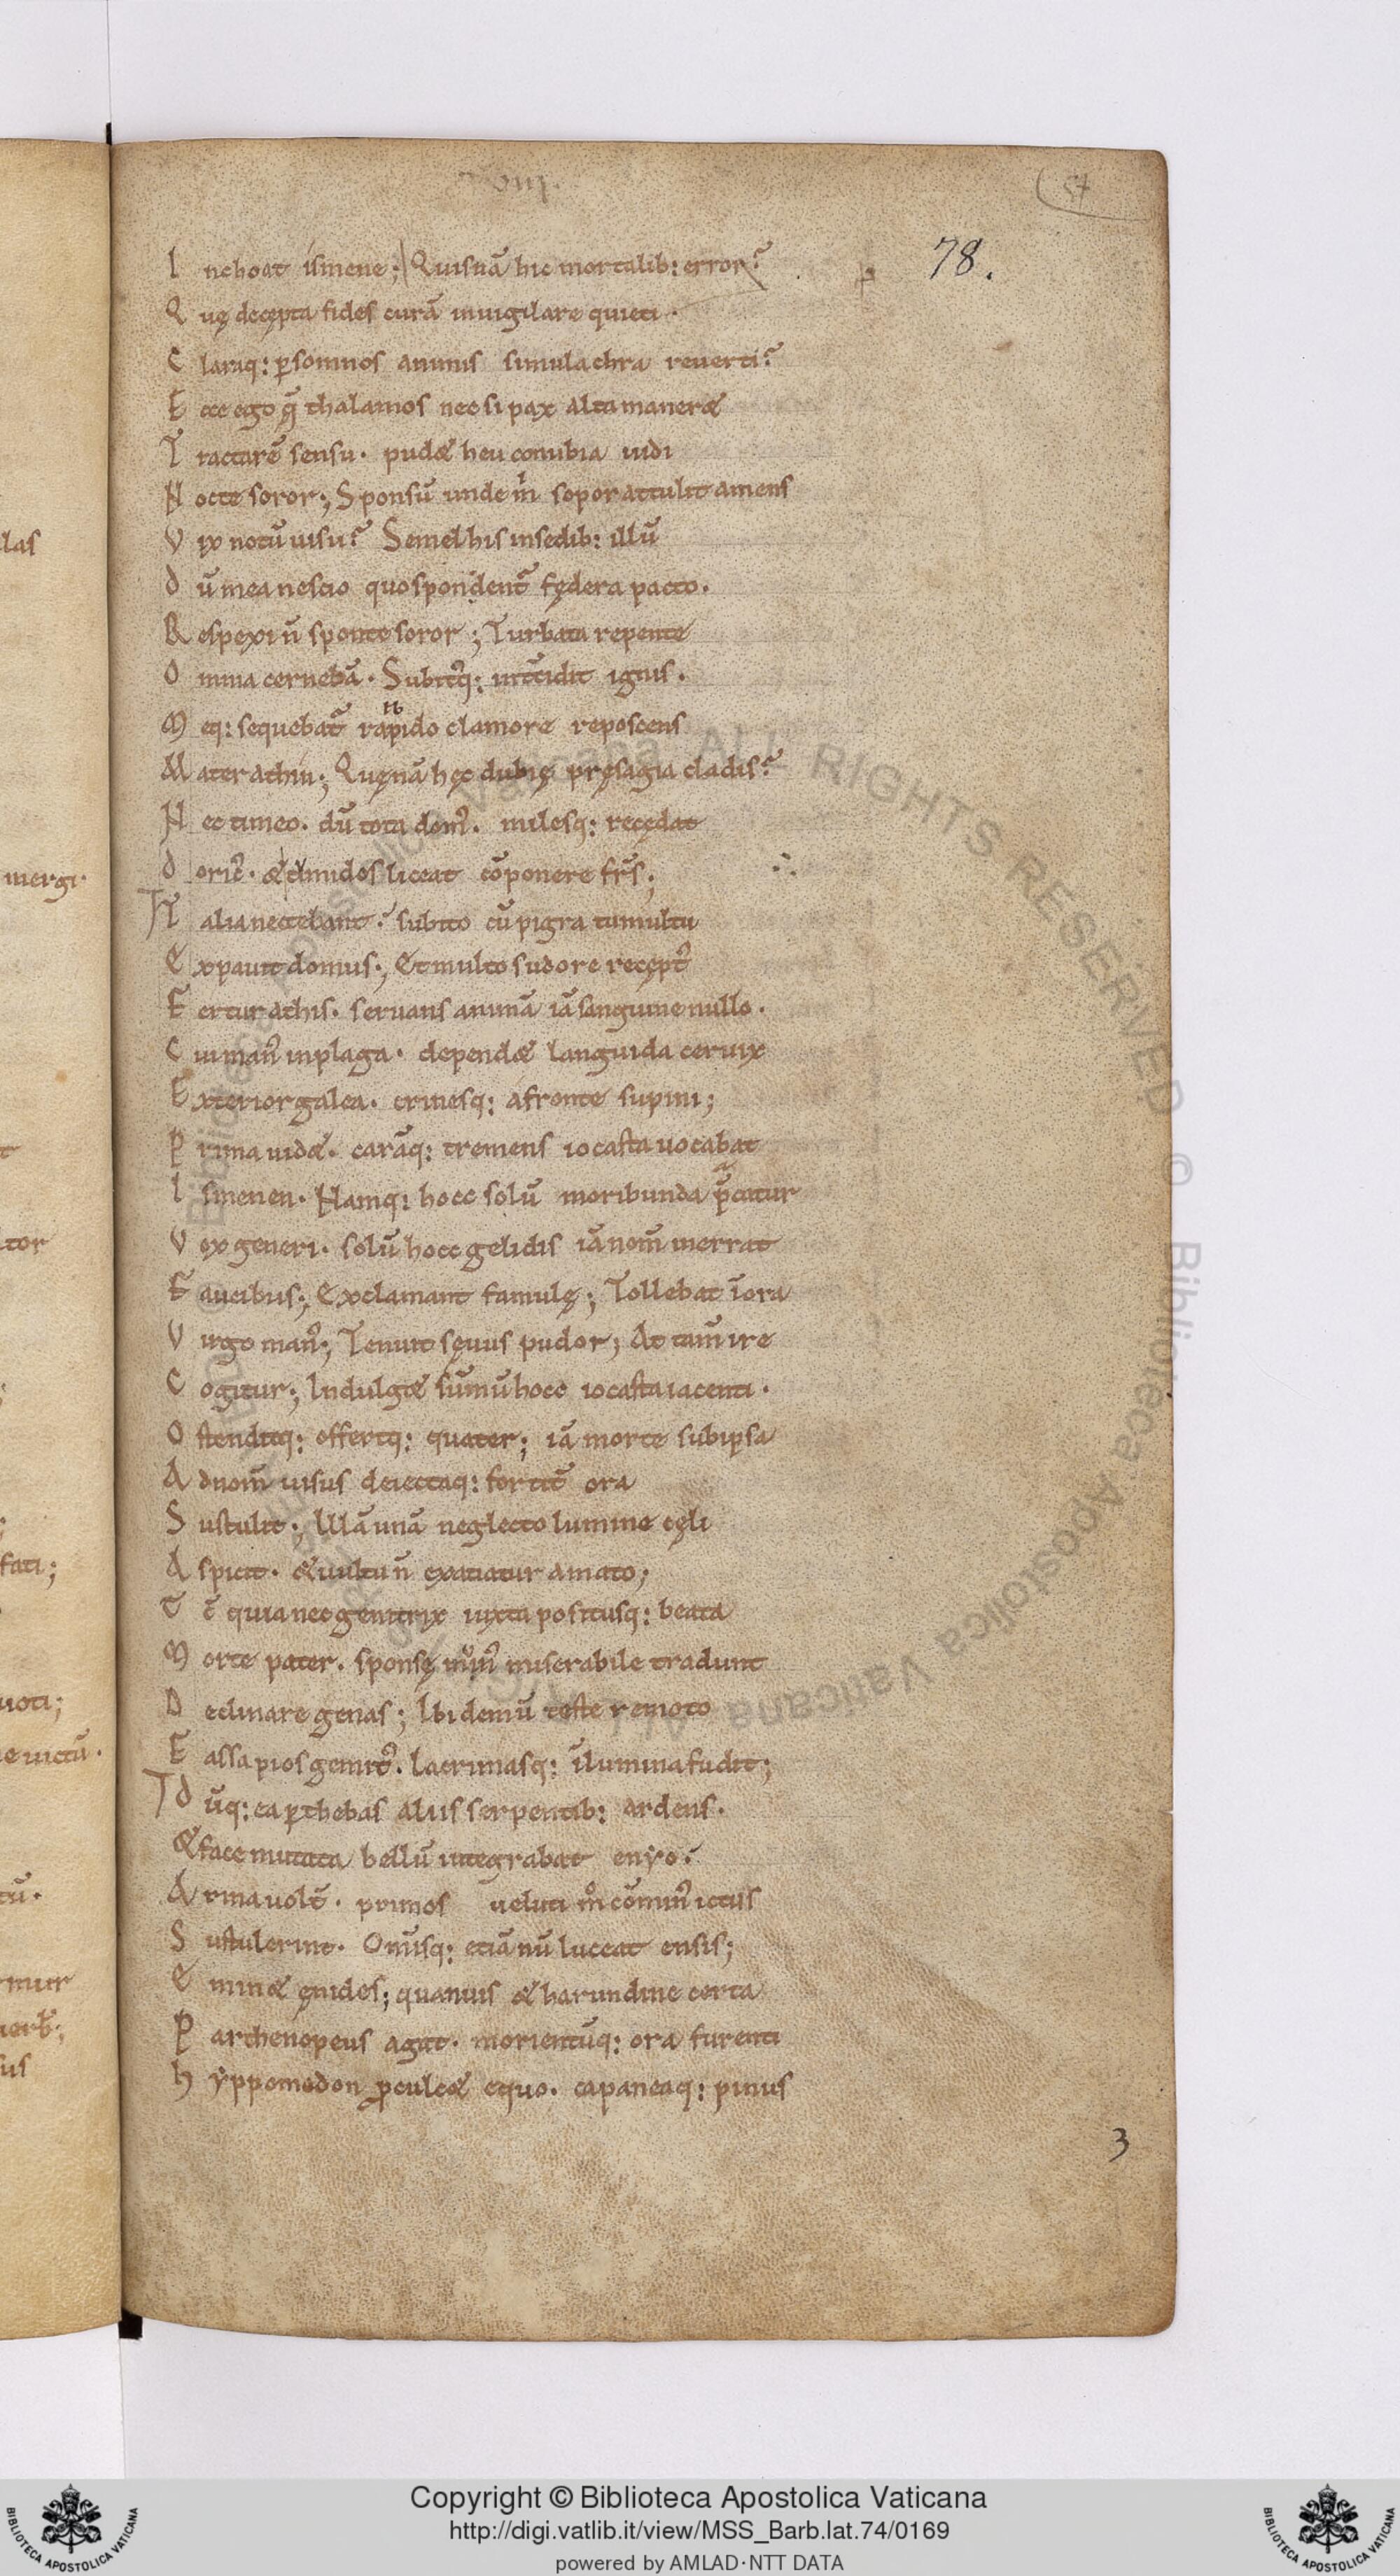 .VIII.
57
78.
I nchoat ismene; Quisnā hic mortalib: error?
Q uę decepta fides curā inuigilare quieti.
C laraq: ꝑ somnos animis simulachra reuerti?
E cce ego q̄ thalamos nec si pax alta maneret
T ractarē sensu. pudet heu conubia uidi
N octe soror; Sponsū unde m̊ sopor attulit amens
V ix notū uisu? Semel his in sedib: illū
D ū mea nescio quo spondent᷑ fędera pacto.
R espexi n̄ sponte soror; Turbata repente
O mnia cernebā. Subit᷒q: int̄cidit ignis.
M eq: sequebat᷑ rapido clamore reposcens
b
M ater athin; Quęnā hęc dubię pręsagia cladis?
N ec timeo. dū tota dom᷒. milesq: recedat
D oric᷒. et tumidos liceat cōponere fr̄s;
T alia nectebant? subito cū pigra tumultu
E xpauit domus; Et multo sudore recept᷒
F ertur athis. seruans animā iā sanguine nullo.
C ui man᷒ in plaga. dependet languida ceruix
E xterior galea. crinesq: a fronte supini;
P rima uidet. carāq: tremens iocasta uocabat
I smenen. Namq: hocc solū moribunda p̄catur
V ox generi. solū hocc gelidis iā nom̄ inerrat
F aucibus; Exclamant famulę; Tollebat ī ora
V irgo man᷒; Tenuit sęuus pudor; At tam̄ ire
C ogitur; Indulget sūmū hocc iocasta iacenti.
O stenditq: offertq: quater; iā morte sub ipsa
A d nom̄ uisus deiectaq: fortit̄ ora
S ustulit; Illā unā neglecto lumine cęli
A spicit. et uultu n̄ exatiatur amato;
T c̄ quia nec genitrix iuxta positusq: beata
M orte pater. sponsę mun᷒ miserabile tradunt
D eclinare genas; Ibi demū teste remoto
F assa pios gemit᷒. lacrimasq: ī lumina fudit;
D ūq: ea ꝑ thebas aliis serpentib: ardens.
Et face mutata bellū integrabat enyo.
A rma uolt̄. primos ueluti m̊ comin᷒ ictus
S ustulerint. Omīsq: etiā nū luceat ensis;
E minet ęnides; quamuis et harundine certa
P arthenopeus agat. morientūq: ora furenti
H yppomedon ꝓculcet equo. capaneaq: pinus
3
las
mergi.
t
tor
;
;
fati;
uoti;
e uictū.
tū.
mur
uerb;
us
Copyright © Biblioteca Apostolica Vaticana
http://digi.vatlib.it/view/MSS_Barb.lat.74/0169
powered by AMLAD·NTT DATA